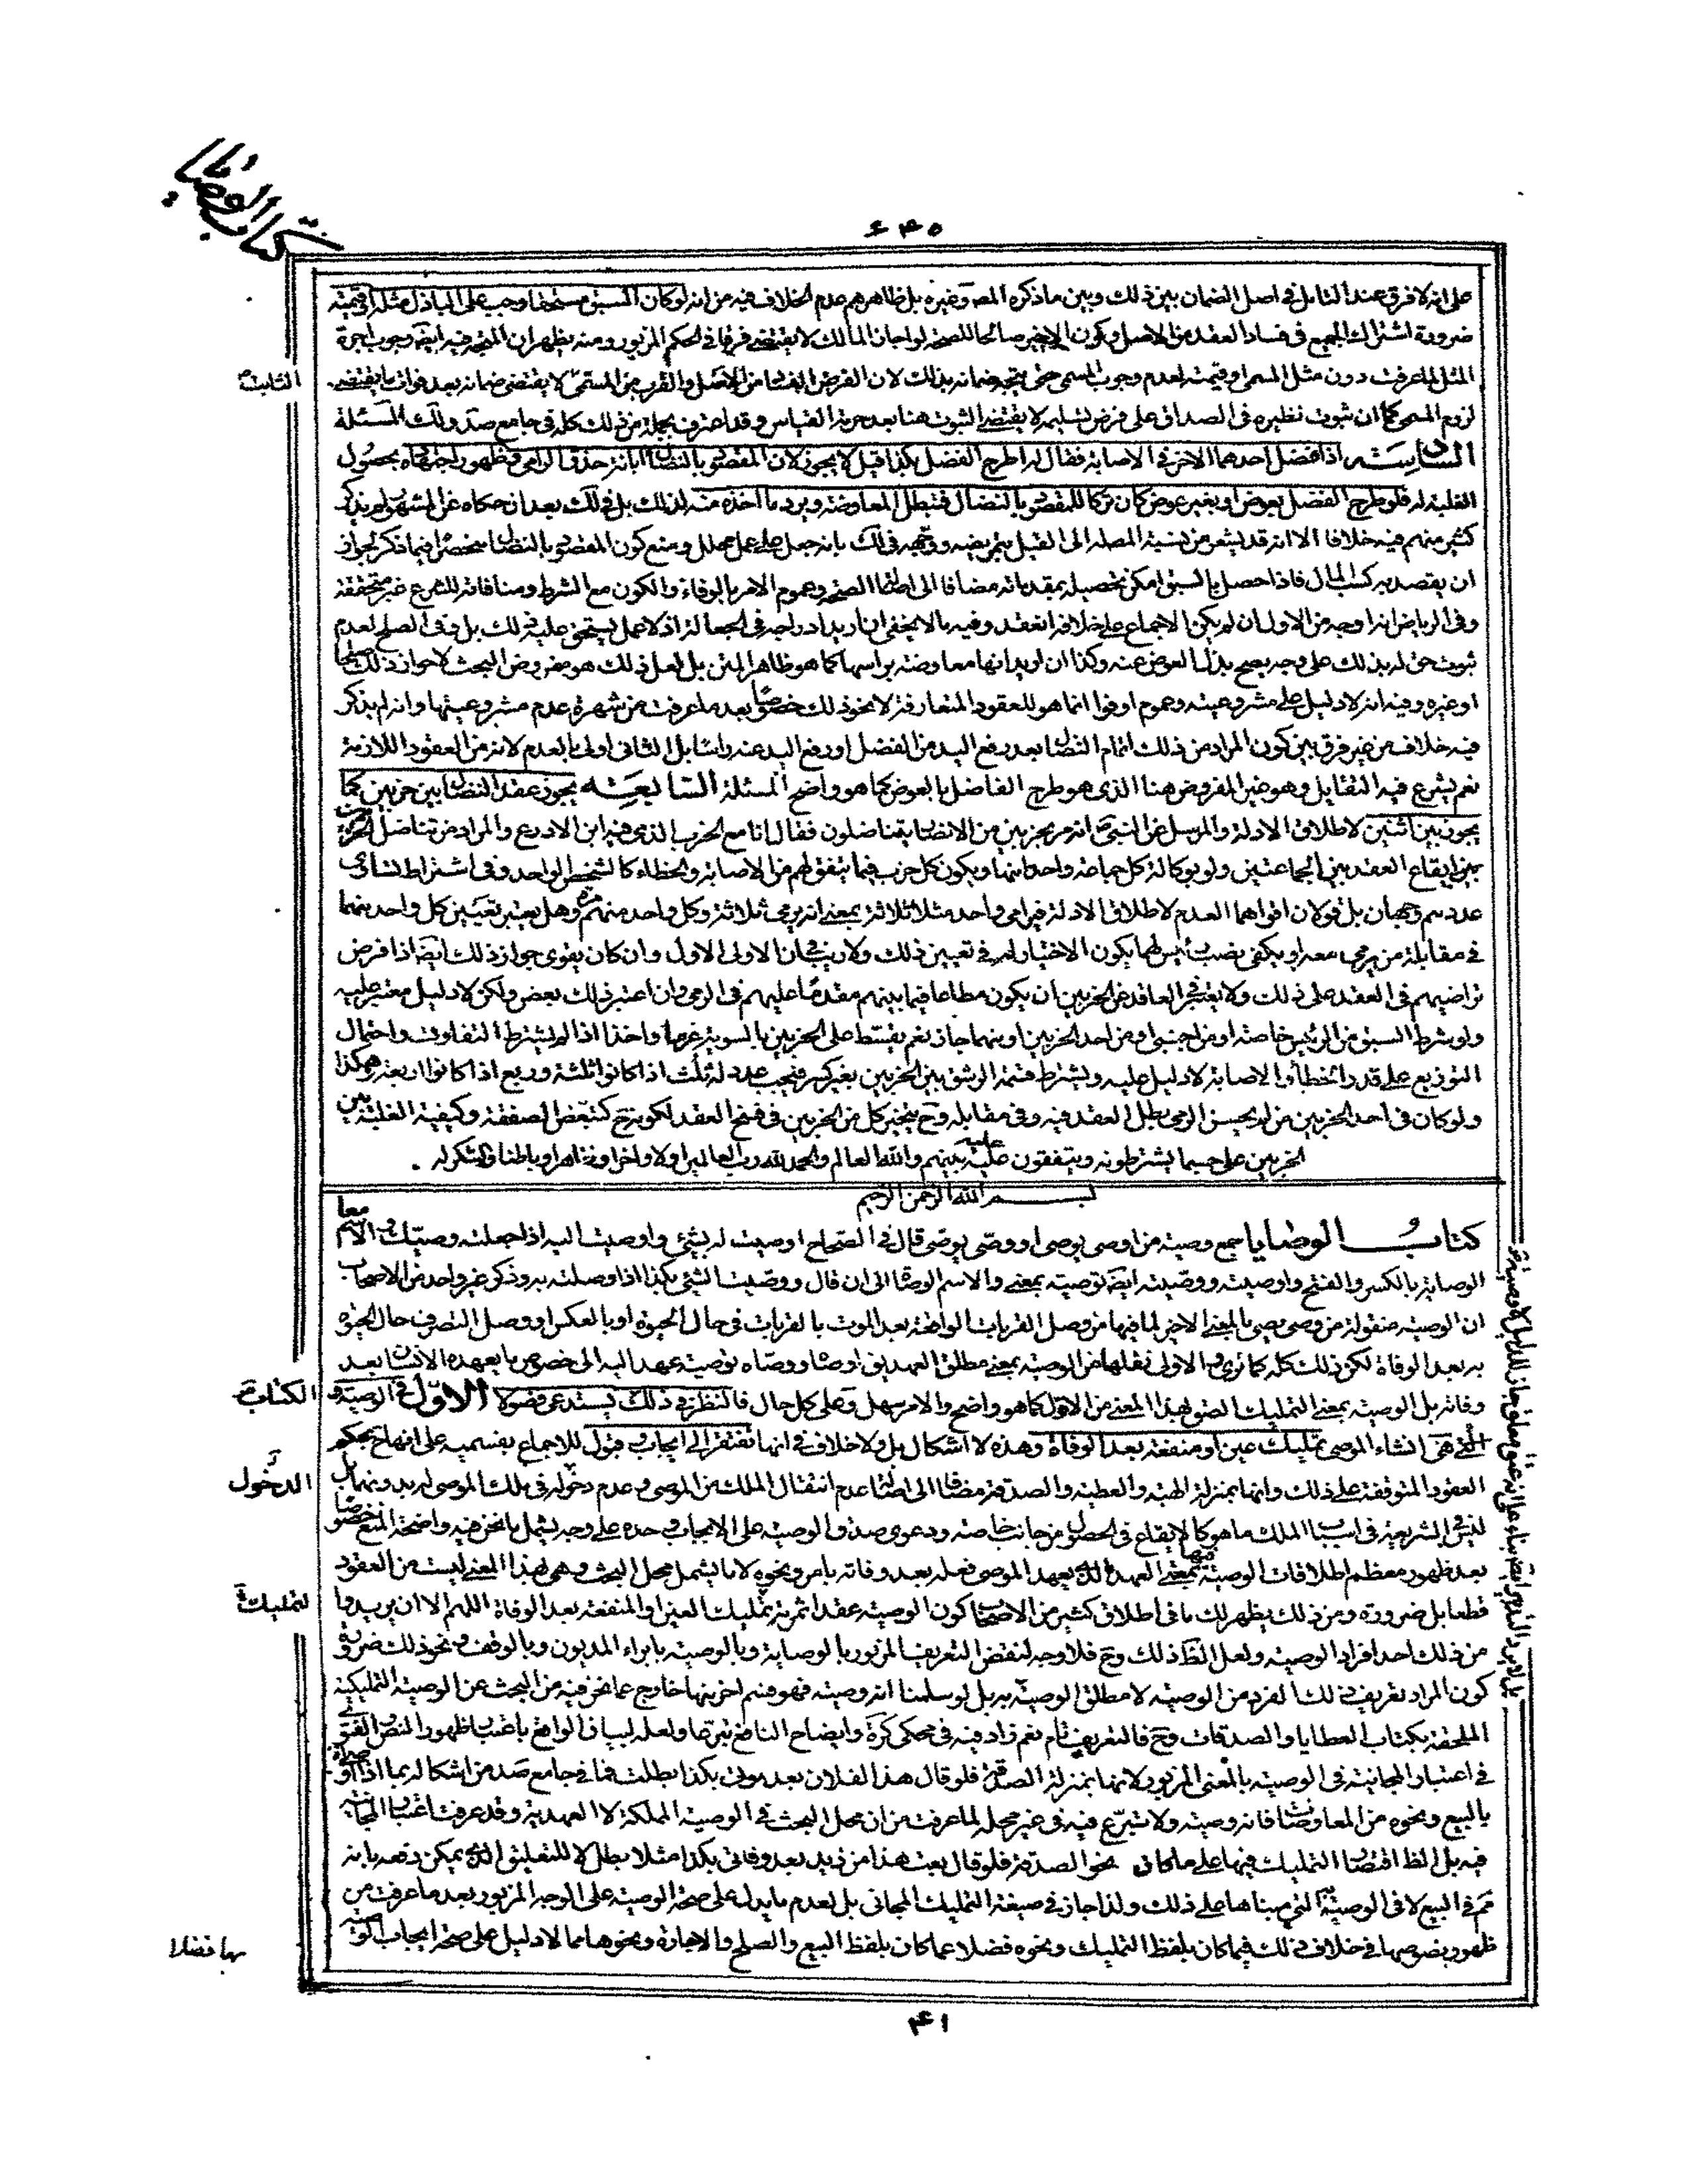 كتاب الوصايا
۶۴۵
على انه لا فرق عند التامل في اصل الضمان بين ذلك وبين ما ذكره المص وغيره بل ظاهرهم عدم الخلاف فيه من انه لو كان السبق مستحقا وجب على الباذل مثله او قيمته
ضرورة اشتراك الجميع في فساد العقد من الاصل وكون الاخير صالحا للصحة لو اجاز المالك لا يقتضي فرقا في الحكم المزبور ومنه يظهر ان المتجه فيه ايضا وجوب اجرة
المثل لما عرفت دون مثل المسمى او قيمته لعدم وجوب المسمى حتى يتجه ضمانه بذلك لان الفرض الفساد من الاصل والقرب من المسمى لا يقتضي ضمانه بعد فوات ما يقتضي
لزوم المسمى كما ان ثبوت نظيره في الصداق على فرض تسليمه لا يقتضي الثبوت هنا بعد حرمة القياس وقد اعترف بجملة من ذلك كله في جامع صد ولك المسئلة
السادسة اذا فضل احدهما الاخر في الاصابة فقال له اطرح الفضل بكذا قيل لا يجوز لان المقصود بالنضال ابانة حذق الرامي وظهور اجتهاده بحصول
الغلبة له فلو طرح الفضل بعوض او بغير عوض كان تركا للمقصود بالنضال فتبطل المعاوضة ويرد ما اخذه منه لذلك بل في لك بعد ان حكاه عن المشهور لم يذكر
كثير منهم فيه خلافا الا انه قد يشعر من نسبة المص له الى القيل بتمريضه ووجهه في لك بانه جعل على عمل محلل ومنع كون المقصود بالنضال منحصرا فيما ذكر لجواز
ان يقصد به كسب المال فاذا حصل بالسبق امكن تحصيله بمقدماته مضافا الى اصالة الصحة وعموم الامر بالوفاء والكون مع الشرط ومنافاته للشرع غير متحققة
وفي الرياض انه اوجه من الاول ان لم يكن الاجماع على خلافه انعقد وفيه ما لا يخفى ان اريد ادراجه في الجعالة اذ لا عمل يستحق عليه ذلك بل وفي الصلح لعدم
ثبوت حق له بذلك على وجه يصح بذل العوض عنه وكذا ان اريد انها معاوضة براسها كما هو ظاهر المتن بل لعل ذلك هو مفروض البحث لا جواز ذلك صلحا
او غيره وفيه انه لا دليل على مشروعيته وعموم اوفوا انما هو للعقود المتعارفة لا نحو ذلك خصوصا بعد ما عرفت من شهرة عدم مشروعيتها وانه لم يذكر
فيه خلاف من غير فرق بين كون المراد من ذلك اتمام النضال بعد رفع اليد من الفضل او رفع اليد عنه راسا بل الثاني اولى بالعدم لانه من العقود اللازمة
نعم يشرع فيه التقايل وهو غير المفروض هنا الذي هو طرح الفاضل بالعوض كما هو واضح المسئلة السابعة يجوز عقد النضال بين حزبين كما
يجوز بين اثنين لاطلاق الادلة والمرسل عن النبي ص انه مر بحزبين من الانصار يتناضلون فقال انا مع الحزب الذي فيه ابن الادرع والمراد من تناضل الحزبين
بين ايقاع العقد بين الجماعتين ولو بوكالة كل جماعة واحدا منها ويكون كل حزب فيما يتفق لهم من الاصابة والخطاء كالشخص الواحد وفي اشتراط تساوي
عددهم وجهان بل قولان اقواهما العدم لاطلاق الادلة فيرامي واحد مثلا ثلاثة بمعنى انه يرمي ثلاثة وكل واحد منهم مرة وهل يعتبر تعيين كل واحد منهما
في مقابلة من يرمي معه او يكفي نصب رئيس لهما يكون الاختيار له في تعيين ذلك ولا ريب في ان الاولى الاول وان كان يقوى جواز ذلك ايضا اذا فرض
تراضيهم في العقد على ذلك ولا يعتبر في العاقد عن الحزبين ان يكون مطاعا فيما بينهم مقدما عليهم في الرمي وان اعتبر ذلك بعض ولكن لا دليل معتبر عليه
ولو شرط السبق من الرئيس خاصة او من اجنبي او من احد الحزبين او منهما جاز نعم يقسط على الحزبين بالسوية غرما واخذا اذا لم يشترط التفاوت واحتمال
التوزيع على قدر الخطا والاصابة لا دليل عليه ويشترط قسمة الرشق بين الحزبين بغير كسر فيجب عدد له ثلث اذا كانوا ثلثة وربع اذا كانوا اربعة وهكذا
ولو كان في احد الحزبين من لم يحسن الرمي بطل العقد فيه وفي مقابله وح يتخير كل من الحزبين في فسخ العقد لكونه ح كتبعض الصفقة وكيفية الغلبة بين
الحزبين على حسبما يشترطونه ويتفقون عليه بينهم والله العالم والحمد لله رب العالمين اولا واخرا وظاهرا وباطنا والشكر له .
بسم الله الرحمن الرحيم
كتاب الوصايا جمع وصية من اوصى يوصي او وصى يوصي قال في الصحاح اوصيت له بشيء واوصيت اليه اذا جعلته وصيك والاسم معا
الوصاية بالكسر والفتح واوصيته ووصيته ايضا توصية بمعنى والاسم الوصاة الى ان قال ووصيت الشيء بكذا اذا وصلته به وذكر غير واحد من الاصحاب
ان الوصية منقولة من وصى يصي بالمعنى الاخير لما فيها من وصل القربات الواقعة بعد الموت بالقربات في حال الحيوة او بالعكس او وصل التصرف حال الحيوة
به بعد الوفاة لكون ذلك كله كما ترى والاولى نقلها من الوصية بمعنى مطلق العهد يق اوصاه ووصاه توصية عهد اليه الى خصوص ما يعهده الانسان بعد
وفاته بل الوصية بمعنى التمليك لهذا المعنى من الاول كما هو واضح والامر سهل وعلى كل حال فالنظر في ذلك يستدعي فصولا الاول في الوصية و
التي هي انشاء الموصي تمليك عين او منفعة بعد الوفاة وهذه لا اشكال بل ولا خلاف في انها تفتقر الى ايجاب وقبول للاجماع بقسميه على انها ح بحكم
العقود المتوقفة على ذلك وانها بمنزلة الهبة والعطية والصدقة مضافا الى اصالة عدم انتقال الملك من الموصي وعدم دخوله في ملك الموصى له بدونهما بل
ليس في الشريعة في اسباب الملك ما هو كالايقاع في الحصول من جانب خاصة ودعوى صدق الوصية على الايجاب وحده على وجه يشمل ما نحن فيه واضحة المنع خصوصا
بعد ظهور معظم اطلاقات الوصية فيها بمعنى العهد الذي يعهد الموصي فعله بعد وفاته بامر ونحوه لا ما يشمل محل البحث وهي بهذا المعنى ليست من العقود
قطعا بل ضرورة ومن ذلك يظهر لك ما في اطلاق كثير من الاصحاب كون الوصية عقدا ثمرته تمليك العين او المنفعة بعد الوفاة اللهم الا ان يريدوا
من ذلك احد افراد الوصية ولعل الظ ذلك وح فلا وجه لنقض التعريف المزبور بالوصاية وبالوصية بابراء المديون وبالوقف ونحو ذلك ضرورة
كون المراد تعريف ذلك الفرد من الوصية لا مطلق الوصية به بل لو سلمنا انه وصية فهو قسم اخر منها خارج عما نحن فيه من البحث عن الوصية التمليكية
الملحقة بكتاب العطايا والصدقات وح فالتعريف تام نعم زاد فيه في محكي كرة وايضاح النافع تبرعا ولعله لبيان الواقع باعتبار ظهور النص والفتوى
في اعتبار المجانية في الوصية بالمعنى المزبور لانها بمنزلة الصدقة فلو قال هذا لفلان بعد موتي بكذا بطلت فما في جامع صد من اشكاله بما اذا اوصى
بالبيع ونحوه من المعاوضات فانه وصية ولا تبرع فيه في غير محله لما عرفت من ان محل البحث في الوصية المملكة لا العهدية وقد عرفت اعتبار المجانية
فيه بل الظ اقتضاء التمليك فيها على ما كان نحو الصدقة فلو قال بعت هذا من زيد بعد وفاتي بكذا مثلا بطل لا للتعليق الذي يمكن دفعه بانه
في البيع لا في الوصية التي مبناها على ذلك ولذا جاز في صيغة التمليك المجاني بل لعدم ما يدل على صحة الوصية على الوجه المزبور بعد ما عرفت من
ظهور نصوصها في خلاف ذلك فيما كان بلفظ التمليك ونحوه فضلا عما كان بلفظ البيع والصلح والاجارة ونحوها مما لا دليل على صحة ايجاب الوصية
الثابت
الكتاب
الدخول
التمليك
بها فضلا
۴۱